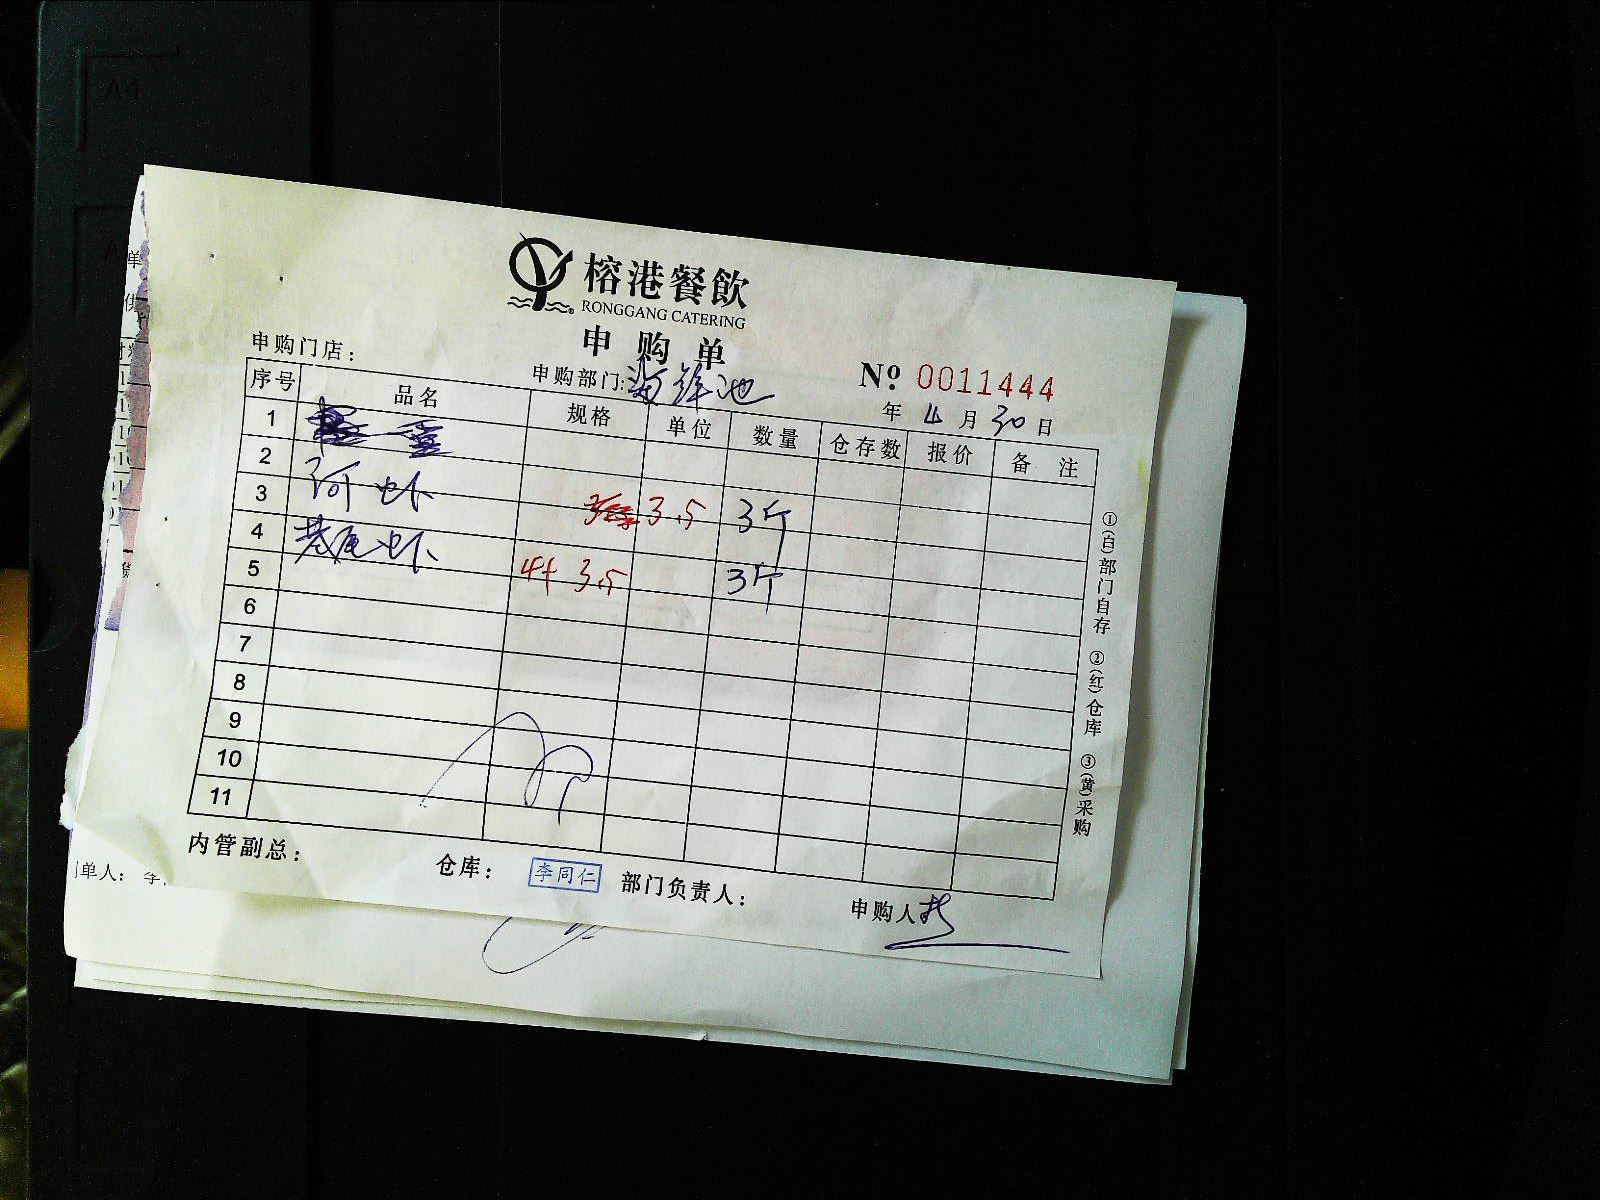 A4
榕港餐飲
RONGGANG CATERING
申购单
申购门店：
申购部门:海鲜池
№ 0011444
年 4 月 30 日
序号 品名 规格 单位 数量 仓存数 报价 备注
1
2
3 河虾 3.5 3斤
4
5 3.5 3斤
6
7
8
9
10
11
①(白)部门自存 ②(红)仓库 ③(黄)采购
内管副总： 仓库： 李同仁 部门负责人： 申购人
单人：